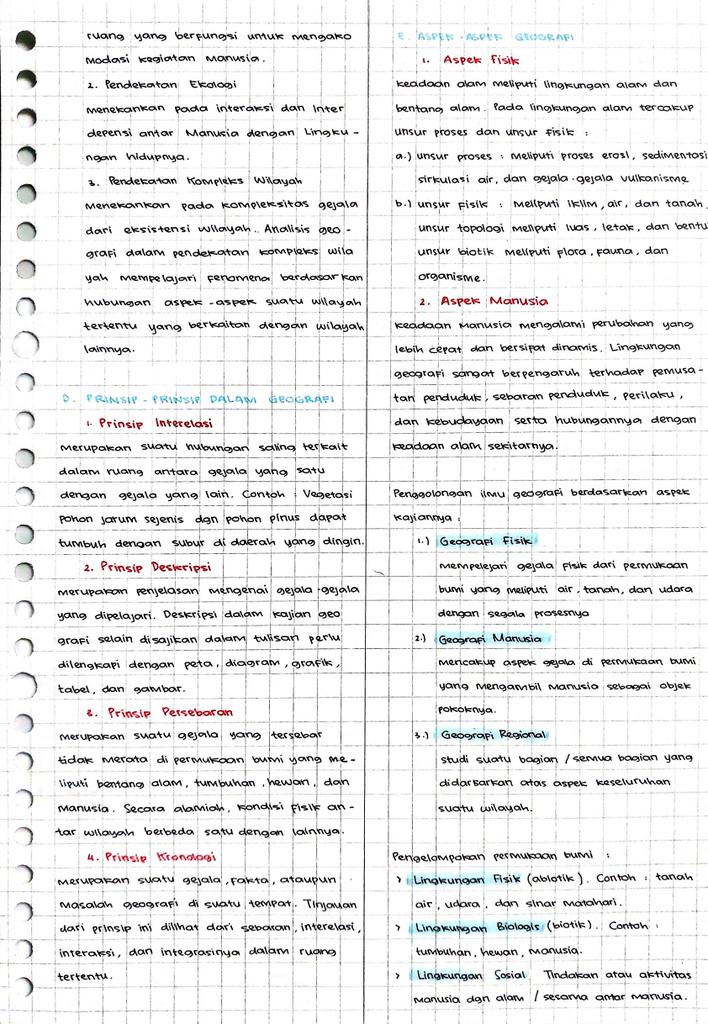 ruang yang berfungsi untuk mengako
modasi kegiatan manusia.
2. Pendekatan Ekologi
menekankan pada interaksi dan inter
depensi antar Manusia dengan Lingku -
ngan hidupnya.
3. Pendekatan Kompleks Wilayah
Menekankan pada kompleksitas gejala
dari eksistensi wilayah. Analisis geo -
grafi dalam pendekatan kompleks wila
yah mempelajari fenomena berdasarkan
hubungan aspek - aspek suatu wilayah
tertentu yang berkaitan dengan wilayah
lainnya.
D. PRINSIP - PRINSIP DALAM GEOGRAFI
1. Prinsip Interelasi
Merupakan suatu hubungan saling terkait
dalam ruang antara gejala yang satu
dengan gejala yang lain. Contoh : Vegetasi
pohon jarum sejenis dgn pohon pinus dapat
tumbuh dengan subur di daerah yang dingin.
2. Prinsip Deskripsi
merupakan penjelasan mengenai gejala-gejala
yang dipelajari. Deskripsi dalam kajian geo
grafi selain disajikan dalam tulisan perlu
dilengkapi dengan peta, diagram, grafik,
tabel, dan gambar.
3. Prinsip Persebaran
merupakan suatu gejala yang tersebar
tidak merata di permukaan bumi yang me-
liputi bentang alam, tumbuhan, hewan, dan
manusia. Secara alamiah, kondisi fisik an-
tar wilayah berbeda satu dengan lainnya.
4. Prinsip Kronologi
merupakan suatu gejala, fakta, ataupun
masalah geografi di suatu tempat. Tinjauan
dari prinsip ini dilihat dari sebaran, interelasi,
interaksi, dan integrasinya dalam ruang
tertentu.
E. ASPEK - ASPEK GEOGRAFI
1. Aspek Fisik
keadaan alam meliputi lingkungan alam dan
bentang alam. Pada lingkungan alam tercakup
unsur proses dan unsur fisik :
a.) unsur proses : meliputi proses erosi, sedimentasi
sirkulasi air, dan gejala-gejala vulkanisme
b.) unsur fisik : Meliputi iklim, air, dan tanah,
unsur topologi meliputi luas, letak, dan bentu
unsur biotik meliputi flora, fauna, dan
organisme.
2. Aspek Manusia
keadaan manusia mengalami perubahan yang
lebih cepat dan bersipat dinamis. Lingkungan
geografi sangat berpengaruh terhadap pemusa-
tan penduduk, sebaran penduduk, perilaku,
dan kebudayaan serta hubungannya dengan
keadaan alam sekitarnya.
Penggolongan ilmu geografi berdasarkan aspek
kajiannya :
1.) Geografi Fisik
mempelejari gejala fisik dari permukaan
bumi yang meliputi air, tanah, dan udara
dengan segala prosesnya
2.) Geografi Manusia
mencakup aspek gejala di permukaan bumi
yang mengambil manusia sebagai objek
pokoknya.
3.) Geografi Regional
studi suatu bagian / semua bagian yang
didarsarkan atas aspek keseluruhan
suatu wilayah.
Pengelompokan permukaan bumi :
> Lingkungan Fisik (abiotik). Contoh : tanah
air, udara, dan sinar matahari.
> Lingkungan Biologis (biotik). Contoh :
tumbuhan, hewan, manusia.
> Lingkungan Sosial Tindakan atau aktivitas
manusia dgn alam / sesama antar manusia.